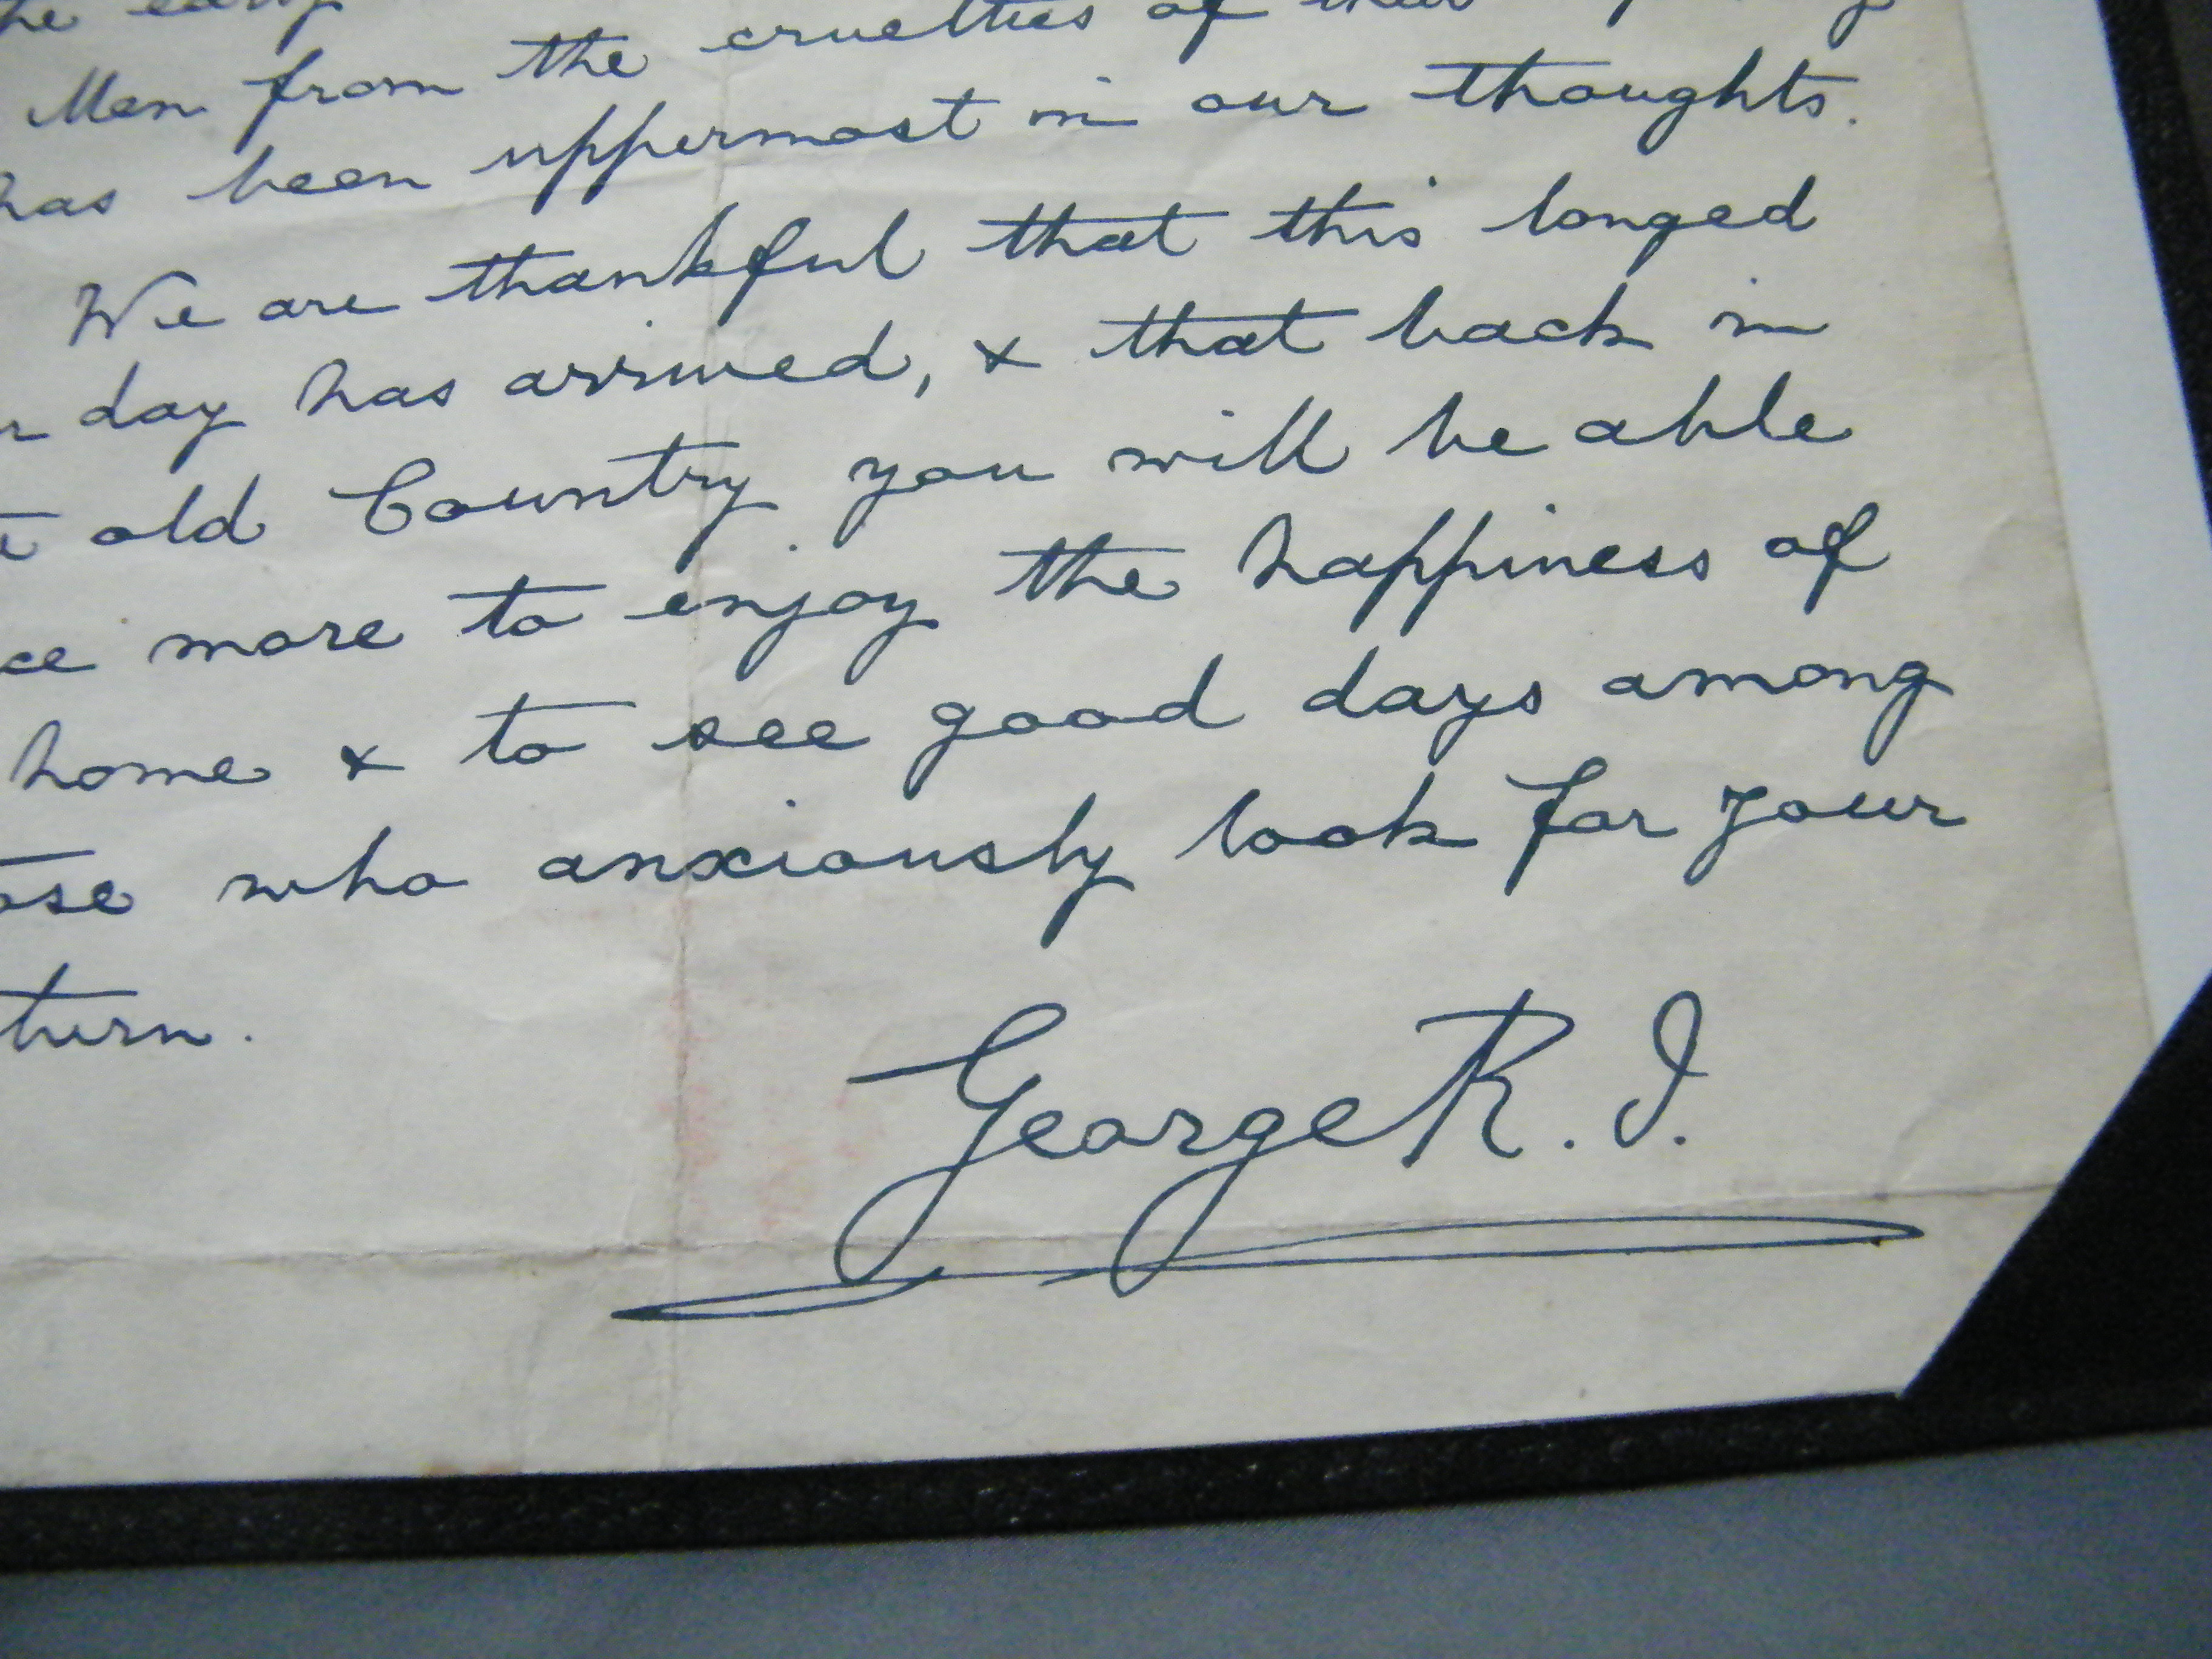 Men from the cruelties of their
has been uppermost in our thoughts.
We are thankful that this longed
day has arrived, & that back in
old Country you will be able
more to enjoy the happiness of
home & to see good days among
who anxiously look for your
turn.
George R.I.